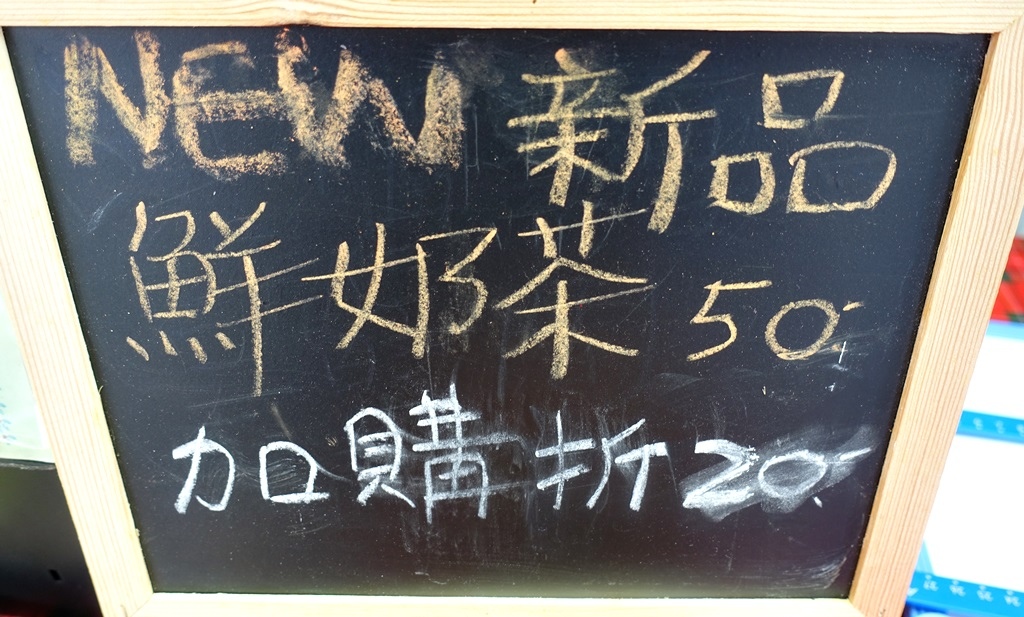 NEW 新品
鮮奶茶 50.-
加購折 20.-